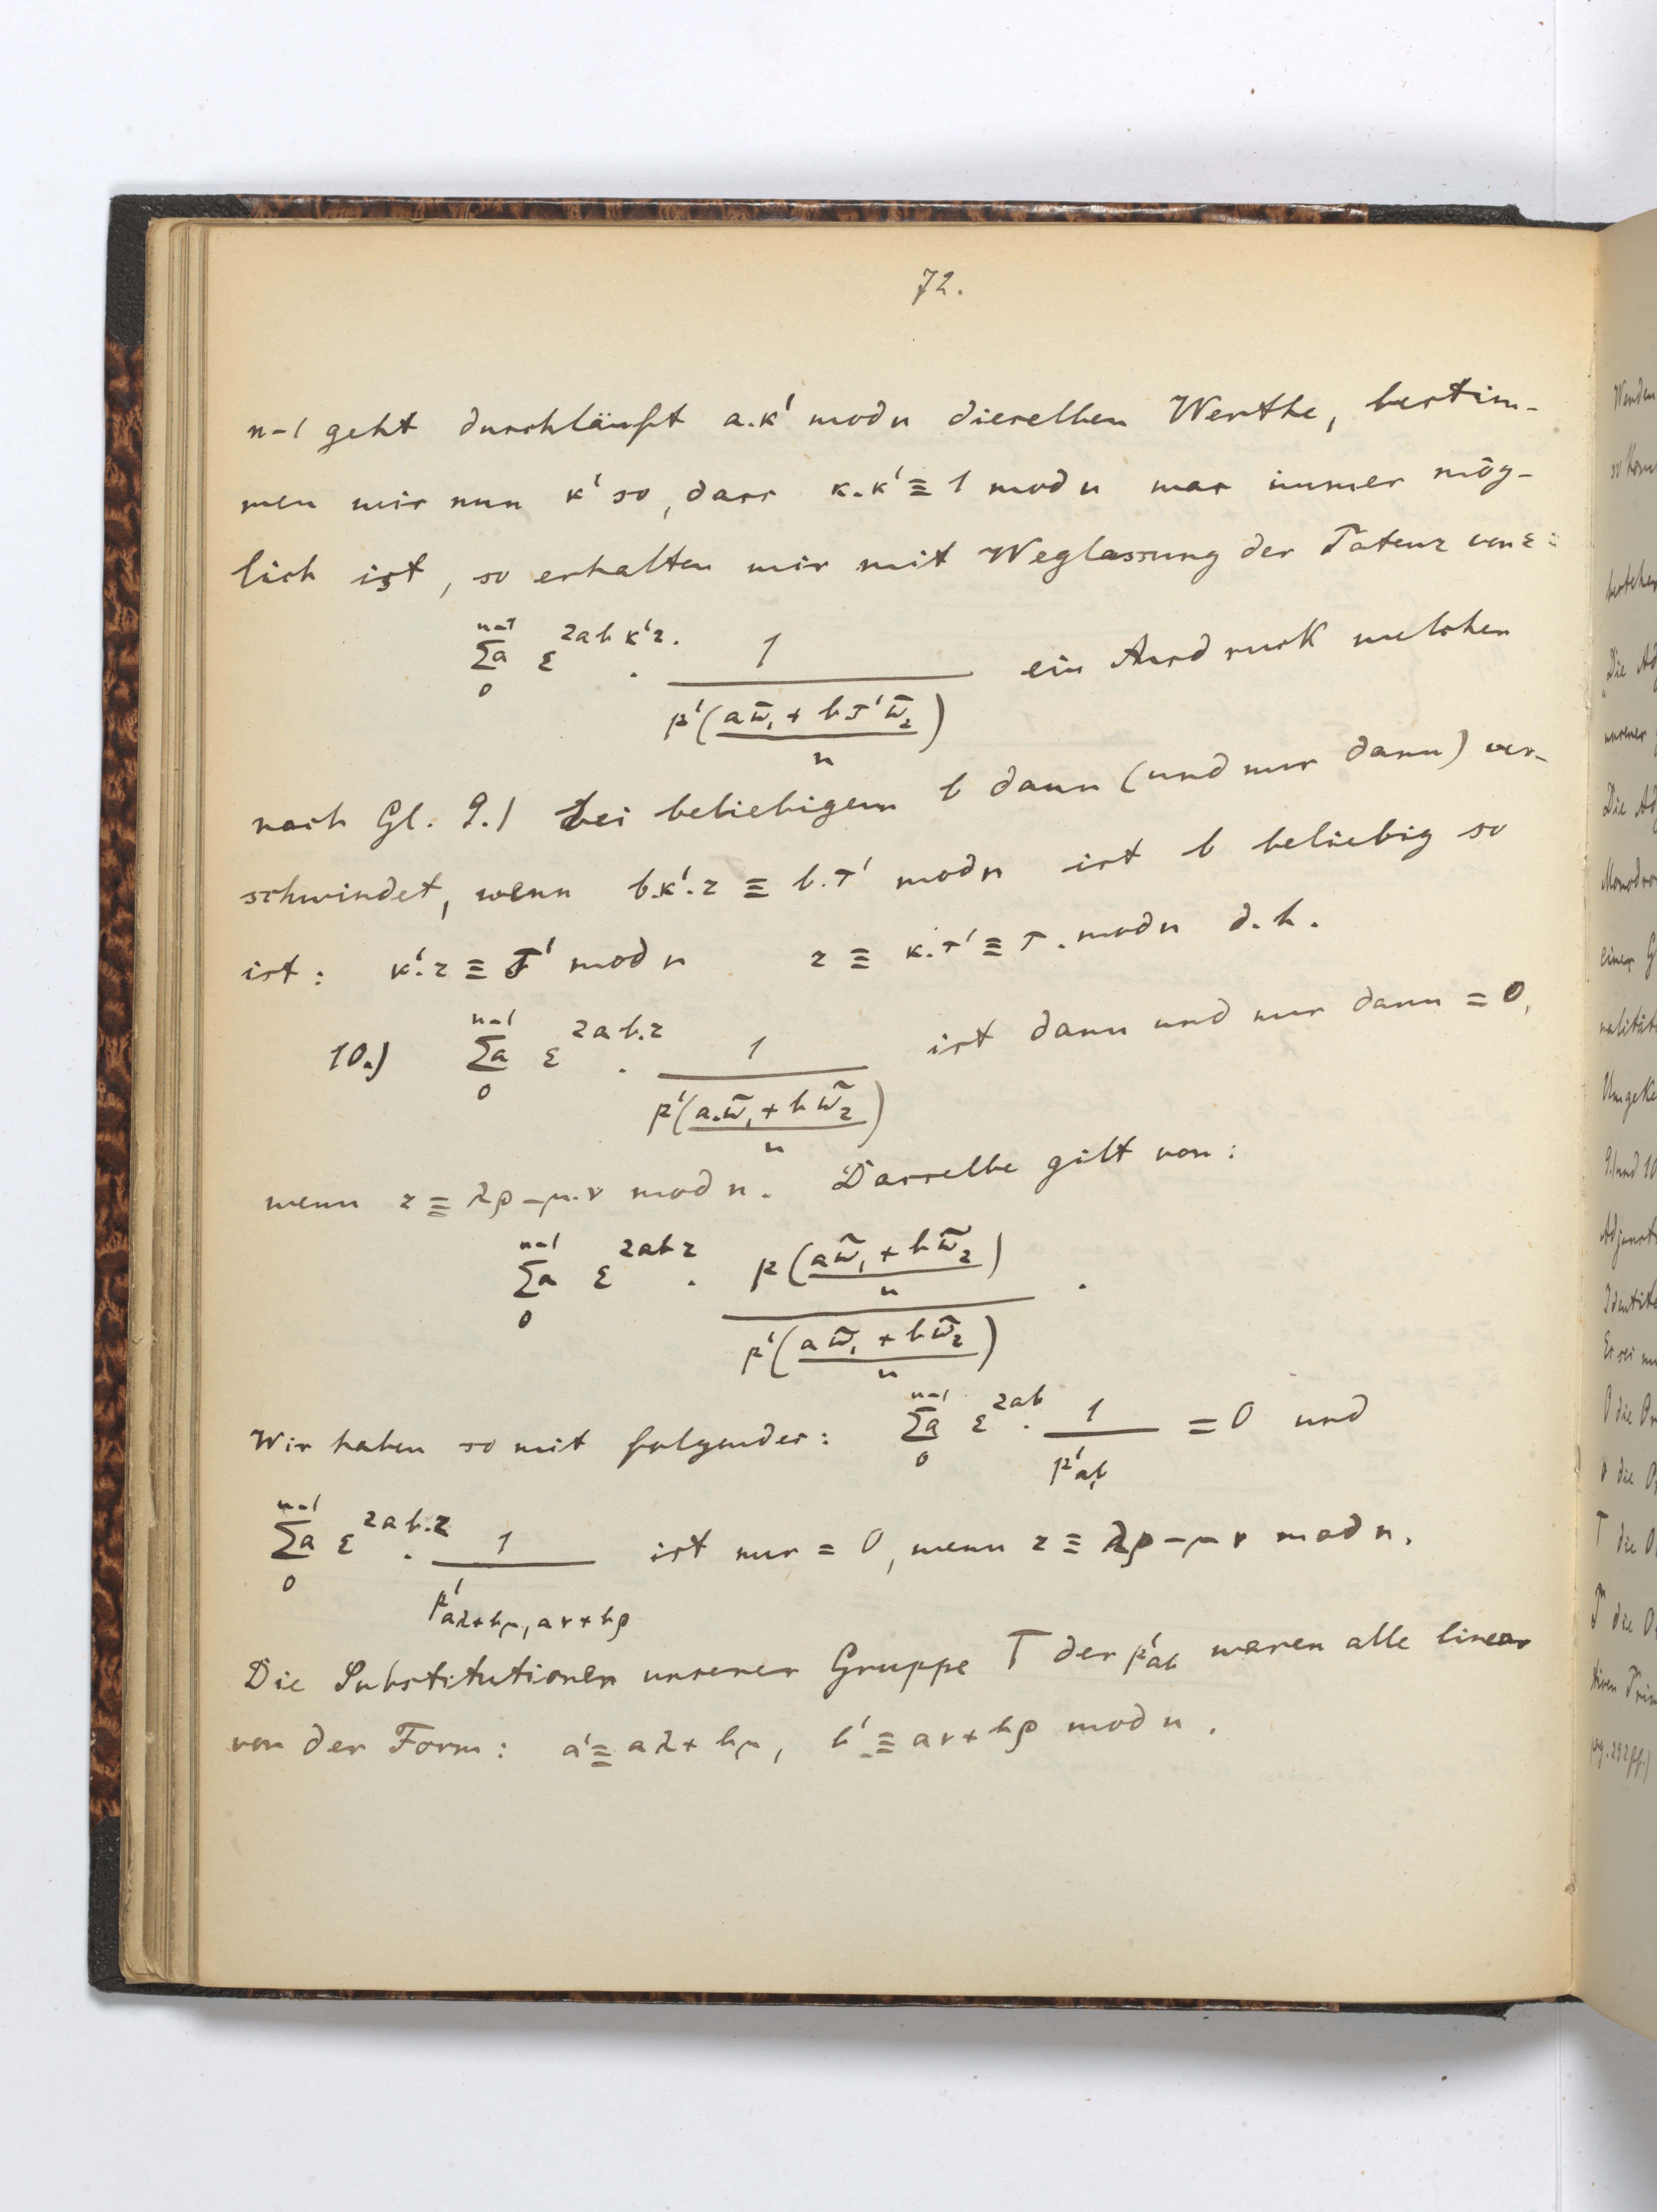 72.
n-1 geht durchläuft a.κ' mod n dieselben Werthe, bestim-
men wir nun κ' so, dass κ.κ' ≡ 1 mod n was immer mög-
lich ist, so erhalten wir mit Weglassung der Potenz von ε:
n-1 Σa 0 ε^{2abκ'r} . 1 / p'((aω̃₁ + bτ'ω̃₂)/n) ein Ausdruck welcher
nach Gl. 9.) bei beliebigem b dann (und nur dann) ver-
schwindet, wenn b.κ'.r ≡ b.τ' mod n ist b beliebig so
ist: κ'.r ≡ τ' mod n r ≡ κ.τ' ≡ τ. mod n d.h.
10.) n-1 Σa 0 ε^{2ab.r} . 1 / p'((a.ω̃₁ + bω̃₂)/n) ist dann und nur dann = 0,
wenn r ≡ λρ-μ.ν mod n. Dasselbe gilt von:
n-1 Σa 0 ε^{2abr} . p((aω̃₁ + bω̃₂)/n) / p'((aω̃₁ + bω̃₂)/n) .
Wir haben so mit folgendes: n-1 Σa 0 ε^{2ab} . 1 / p'_{ab} = 0 und
n-1 Σa 0 ε^{2ab.r} . 1 / p'_{aλ+bμ, aν+bρ} ist nur = 0, wenn r ≡ λρ-μν mod n.
Die Substitutionen unserer Gruppe T der p'_{ab} waren alle linear
von der Form: a' ≡ aλ+bμ, b' ≡ aν+bρ mod n.
Werden
Die Ad
unserer
Die Ad
Monodro
einer G
nalität
Umgeke
9.) und 10
Adjunct
Identität
Es sei nu
die Or
die O
T die O
die O
pg. 292 ff.)